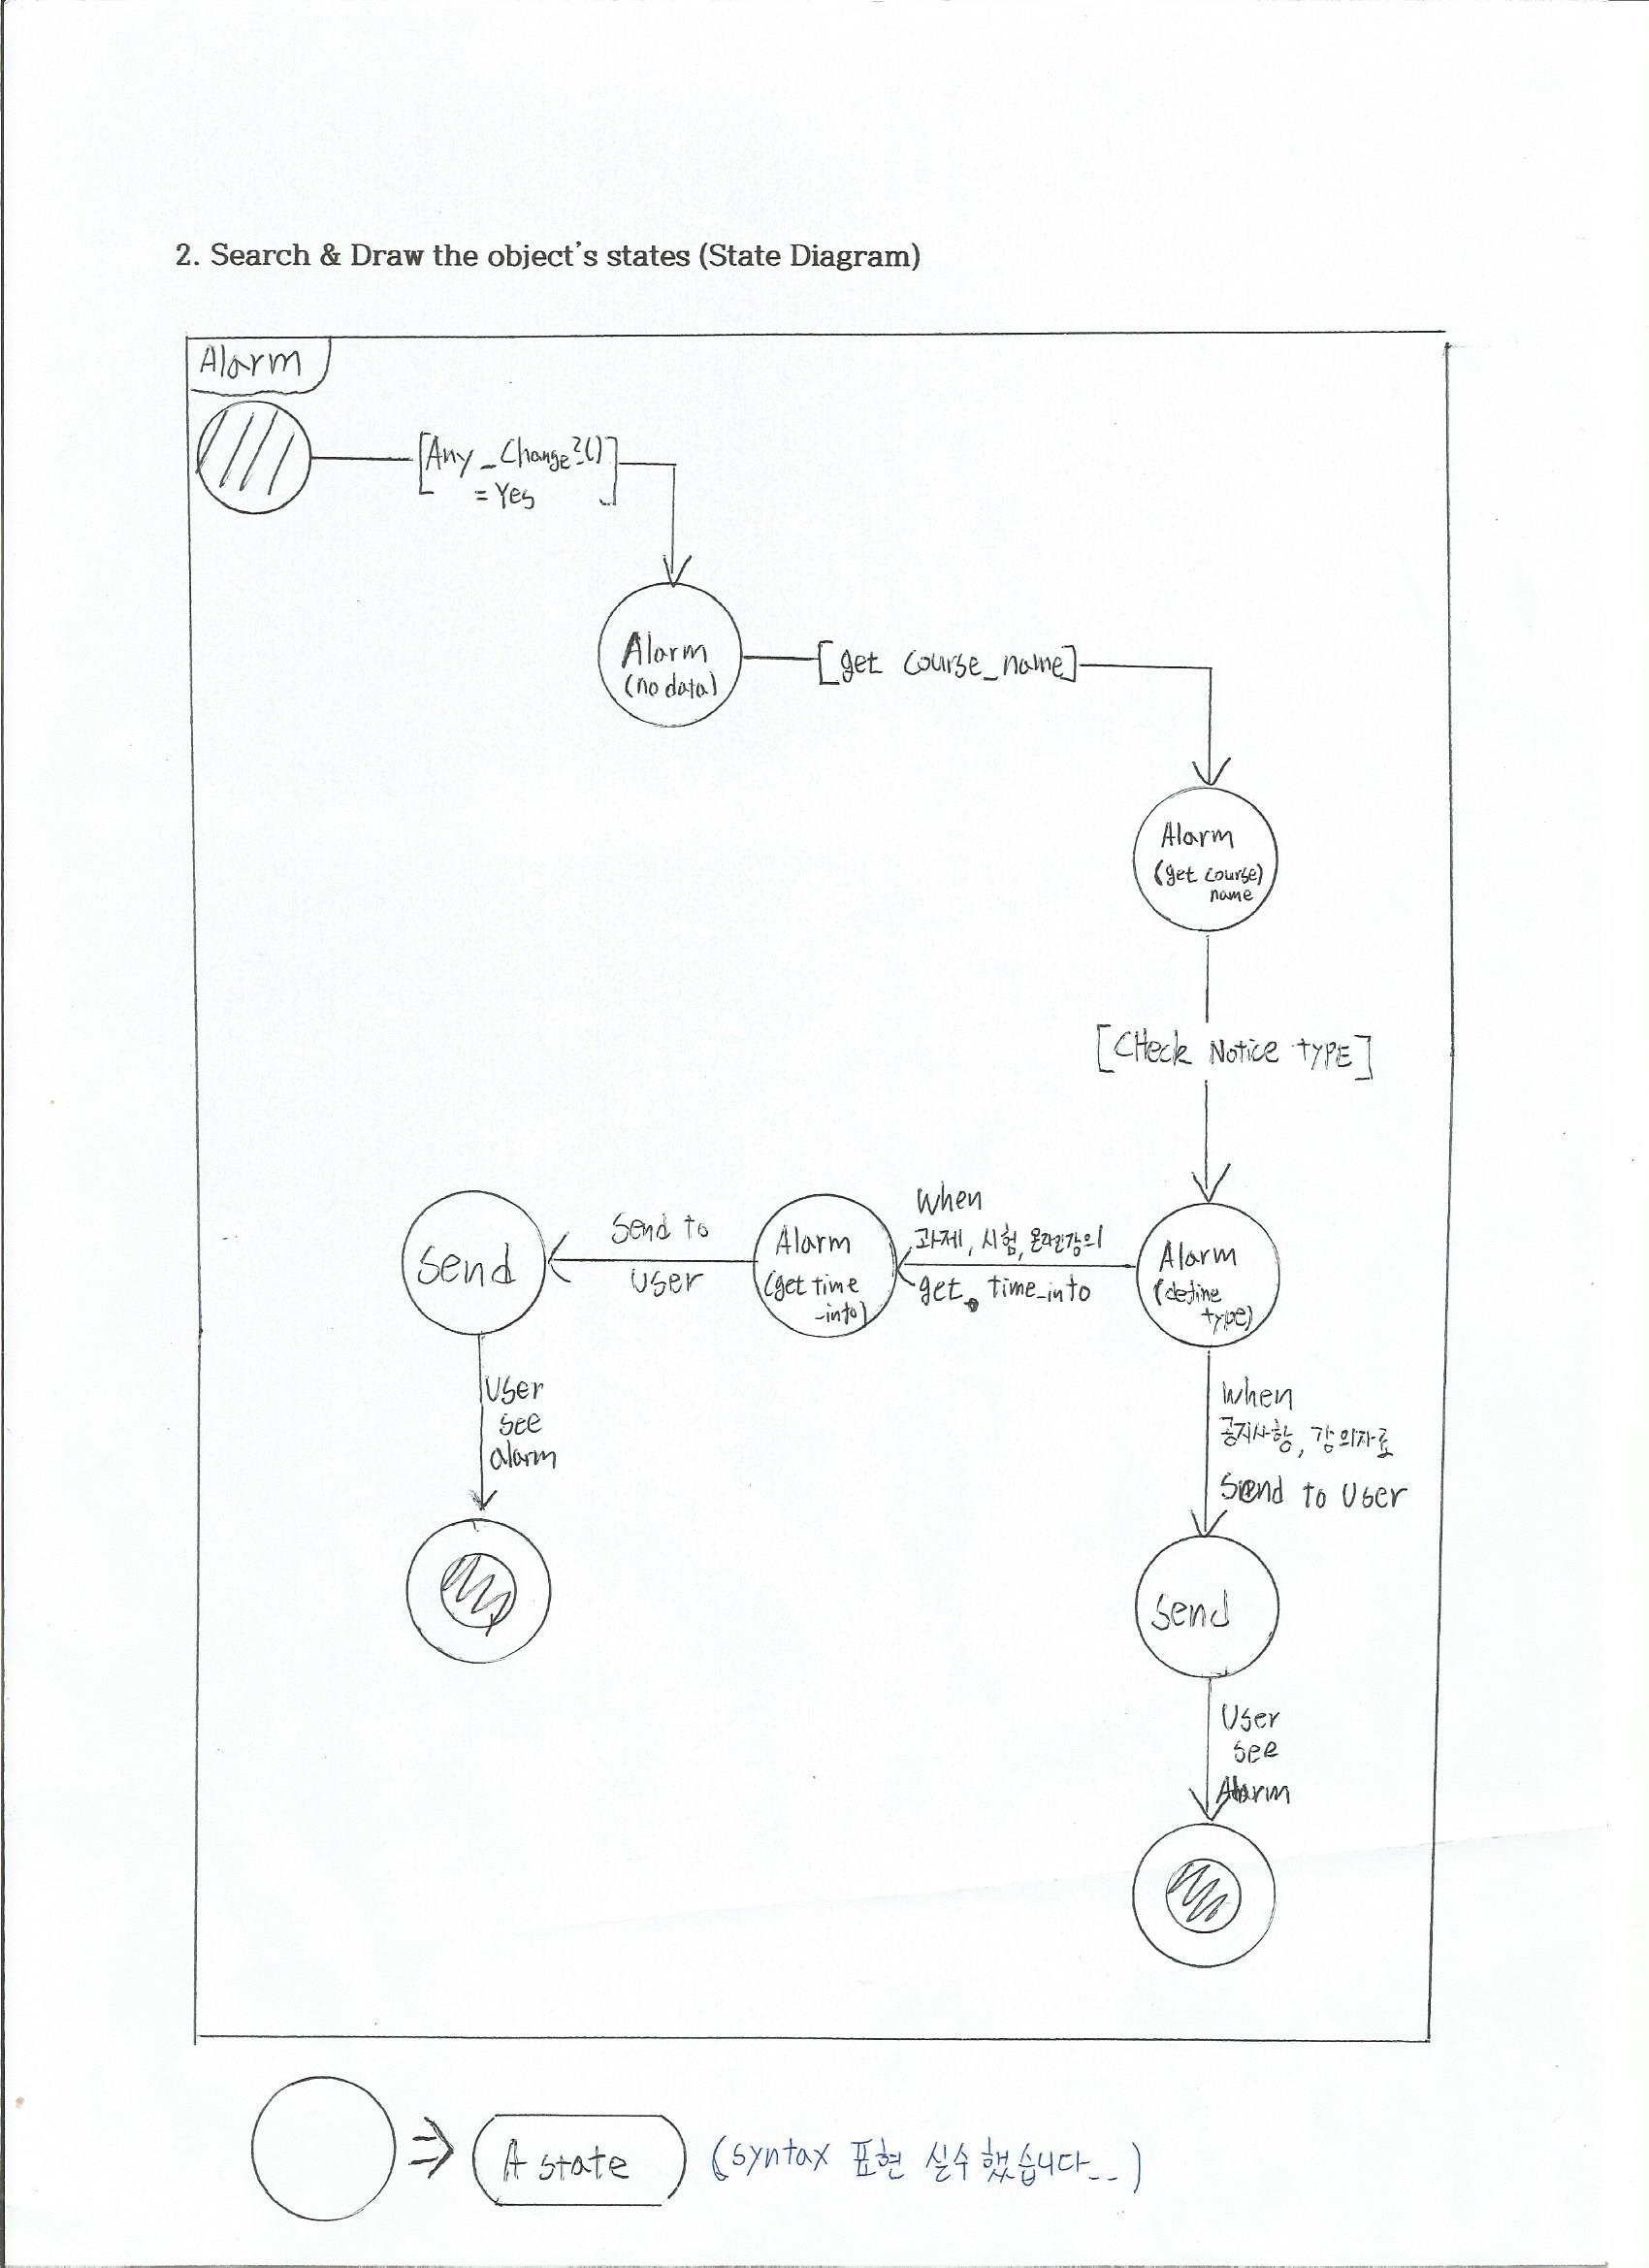 2. Search & Draw the object's states (State Diagram)
Alarm
[Any_Change?()]
= Yes
Alarm
(no data)
[get course_name]
Alarm
(get course)
name
[CHeck Notice tyPE]
Send
Send to
User
Alarm
(get time
-info)
When
과제, 시험, 온라인강의
get time_info
Alarm
(define
type)
User
see
alarm
When
공지사항, 강의자료
Send to User
Send
User
see
Alarm
⇒ A state (syntax 표현 실수 했습니다..)